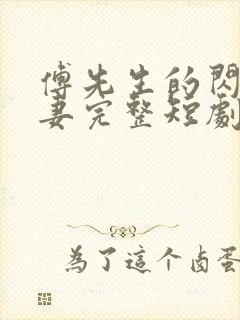 傅先生的閃
妻完整短劇
為了這个卤蛋